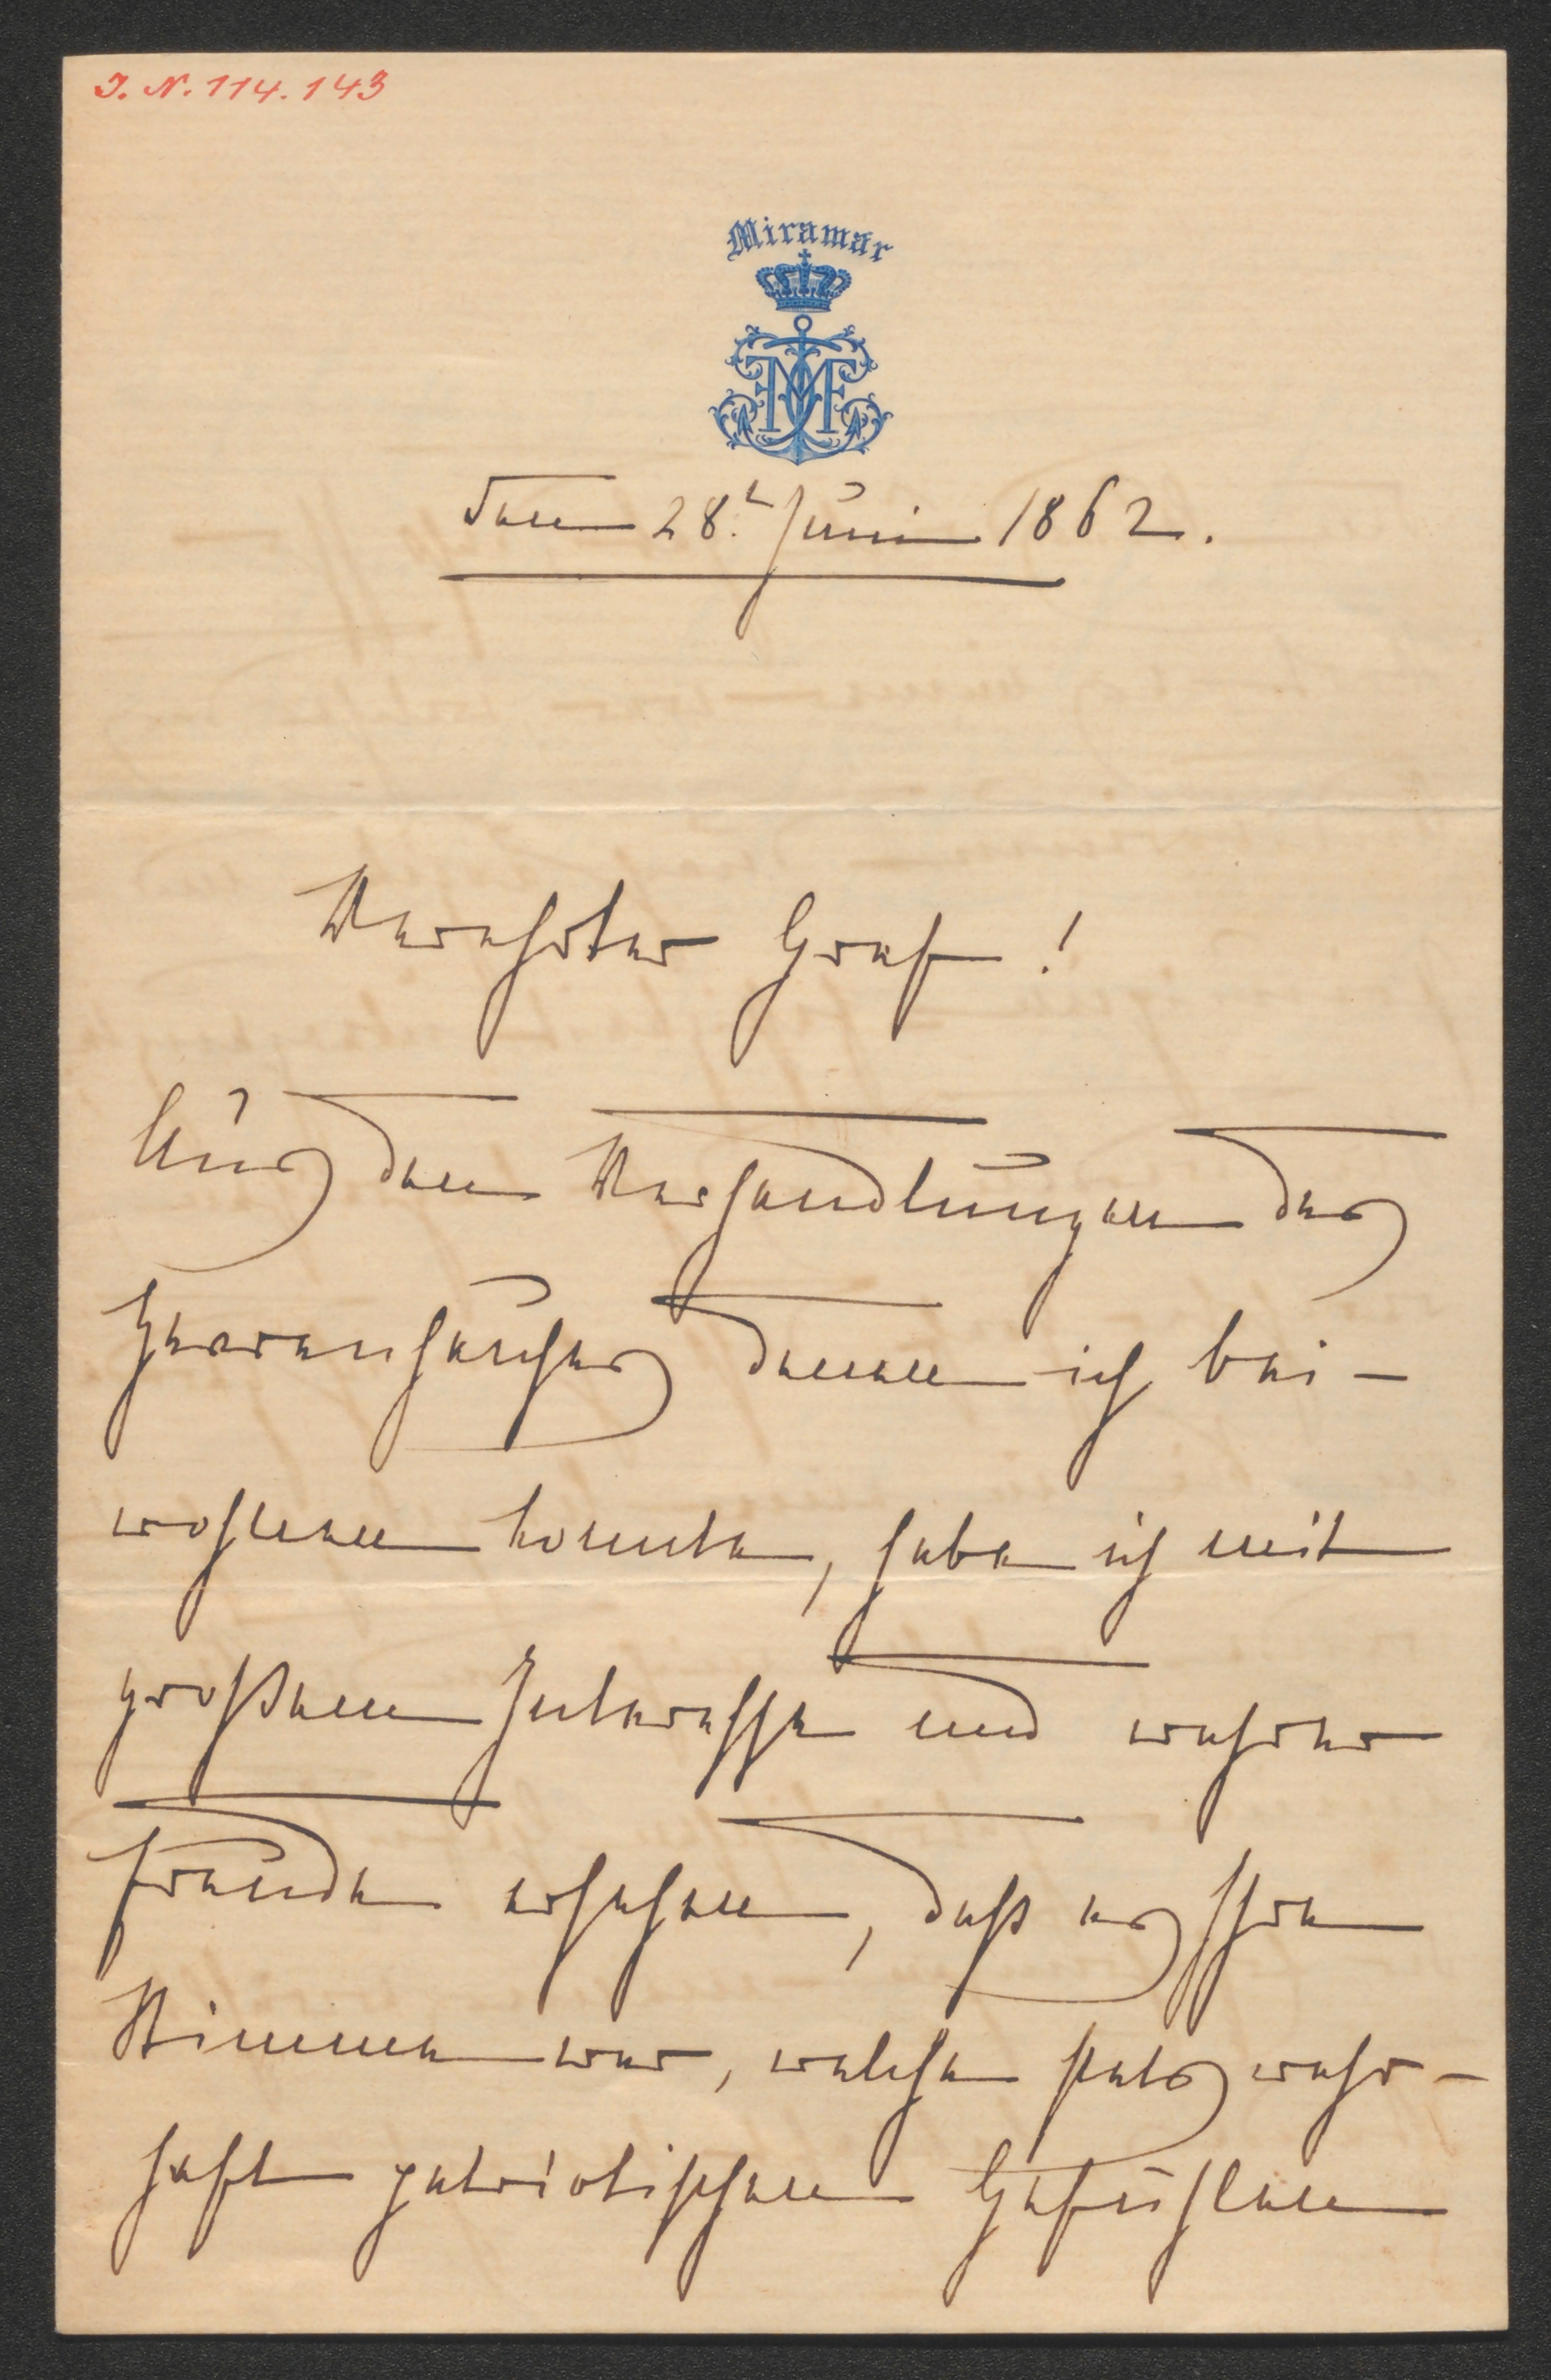 I. N. 114.143
Miramar
Den 28.t Juni 1862.
Verehrter Graf!
Aus den Verhandlungen des
Herrenhauses denen ich bei-
wohnen konnte, habe ich mit
großem Interesse und wahrer
Freude ersehen, daß es Ihre
Stimme war, welche stets wahr-
haft patriotischen Gefühlen